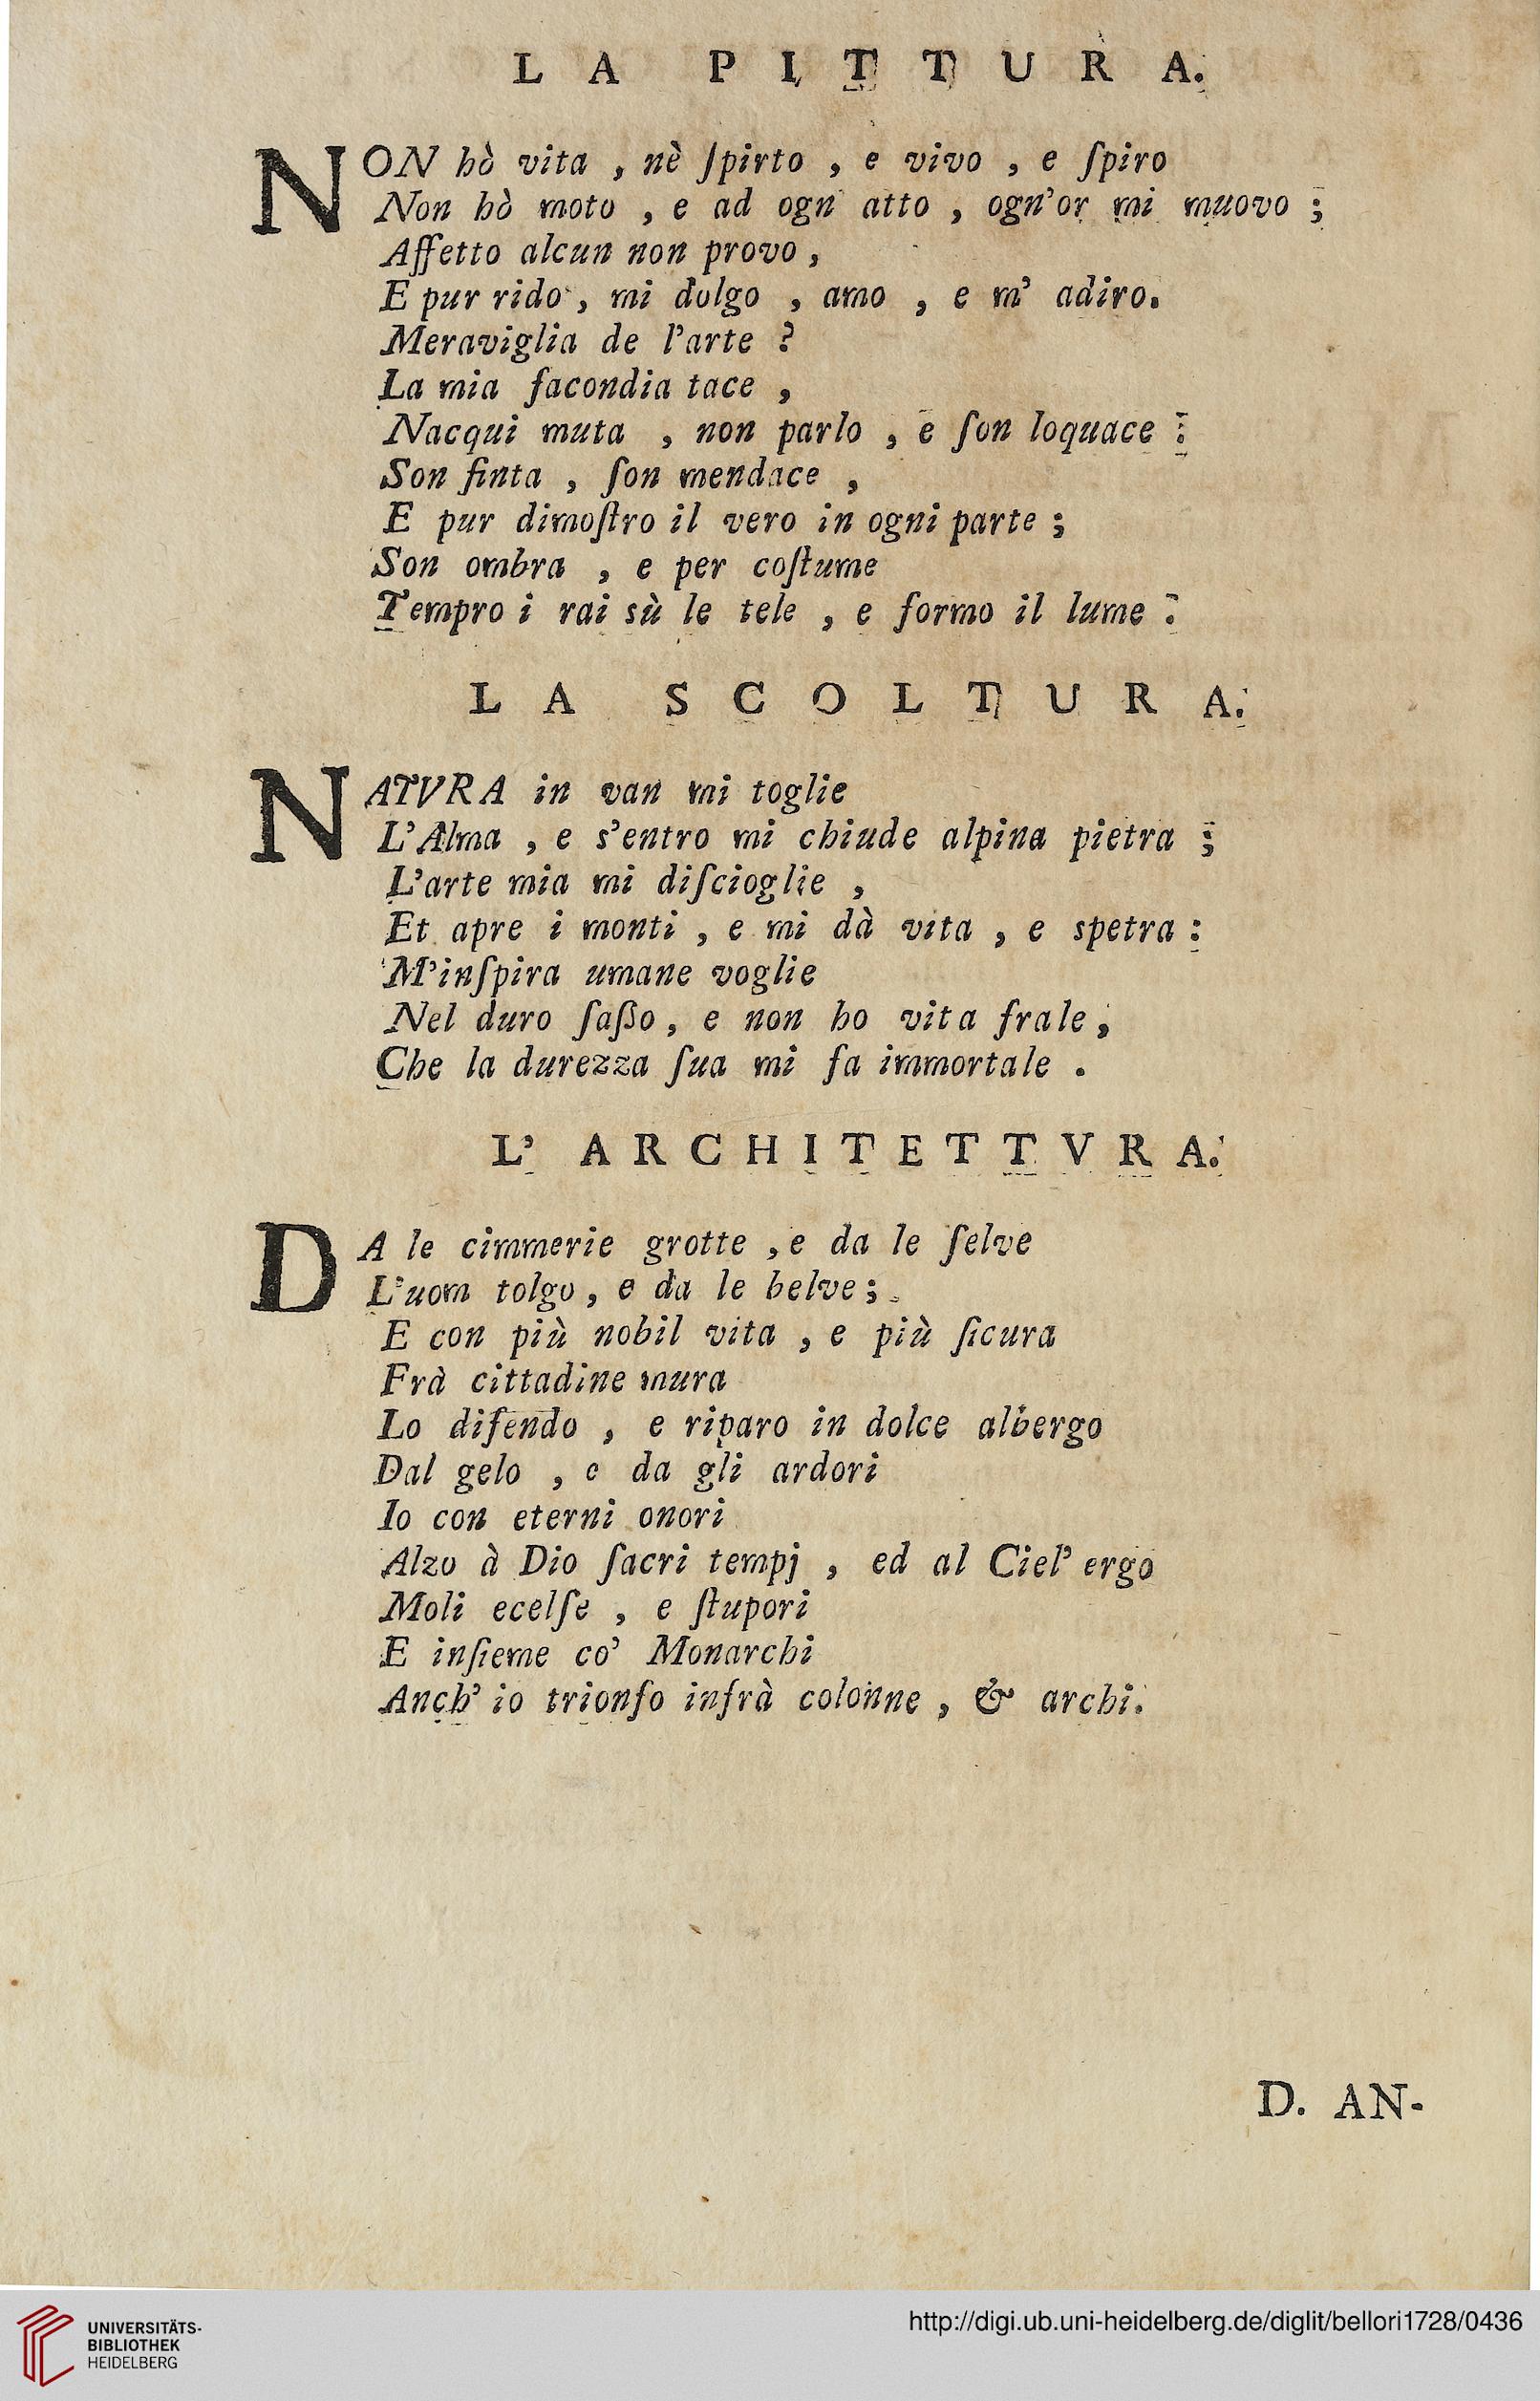 LA PITTURA.
NON hò vita , nè ſpirto , e vivo , e ſpiro
Non hò moto , e ad ogn atto , ogn'or mi muovo ;
Affetto alcun non provo ,
E pur rido , mi dolgo , amo , e m' adiro.
Meraviglia de l'arte ?
La mia facondia tace ,
Nacqui muta , non parlo , e ſon loquace :
Son finta , ſon mendace ,
E pur dimoſtro il vero in ogni parte ;
Son ombra , e per coſtume
Tempro i rai sù le tele , e formo il lume .
LA SCOLTURA.
NATVRA in van mi toglie
L'Alma , e s'entro mi chiude alpina pietra ;
L'arte mia mi diſcioglie ,
Et apre i monti , e mi dà vita , e spetra :
M'inſpira umane voglie
Nel duro ſaßo , e non ho vita frale ,
Che la durezza ſua mi fa immortale .
L' ARCHITETTVRA.
DA le cimmerie grotte , e da le ſelve
L'uom tolgo , e da le belve ;
E con più nobil vita , e più ſicura
Frà cittadine mura
Lo difendo , e riparo in dolce albergo
Dal gelo , e da gli ardori
Io con eterni onori
Alzo à Dio ſacri tempj , ed al Ciel' ergo
Moli ecelſe , e ſtupori
E inſieme co' Monarchi
Anch' io trionfo infrà colonne , & archi.
D. AN-
UNIVERSITÄTS-
BIBLIOTHEK
HEIDELBERG
http://digi.ub.uni-heidelberg.de/diglit/bellori1728/0436